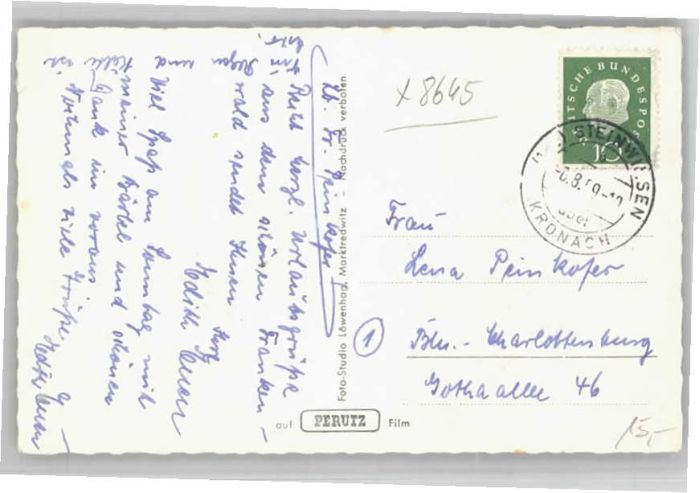 x 8645
DEUTSCHE BUNDESPOST
10
STEINWIESEN
6.8.59-12
über
KRONACH
Lb. Fr. Peinkofer
Recht herzl. Urlaubsgrüße
aus dem schönen Franken-
wald sendet Ihnen
Ihre
Edith
Viel Spaß am Sonntag mit
meiner Bärbel und schönen
Dank im voraus
Nochmals viele Grüße
Foto-Studio Löwenhag, Marktredwitz - Nachdruck verboten
Frau
Lena Peinkofer
1
Bln.- Charlottenburg
Gothaallee 46
auf PERUTZ Film
15,-